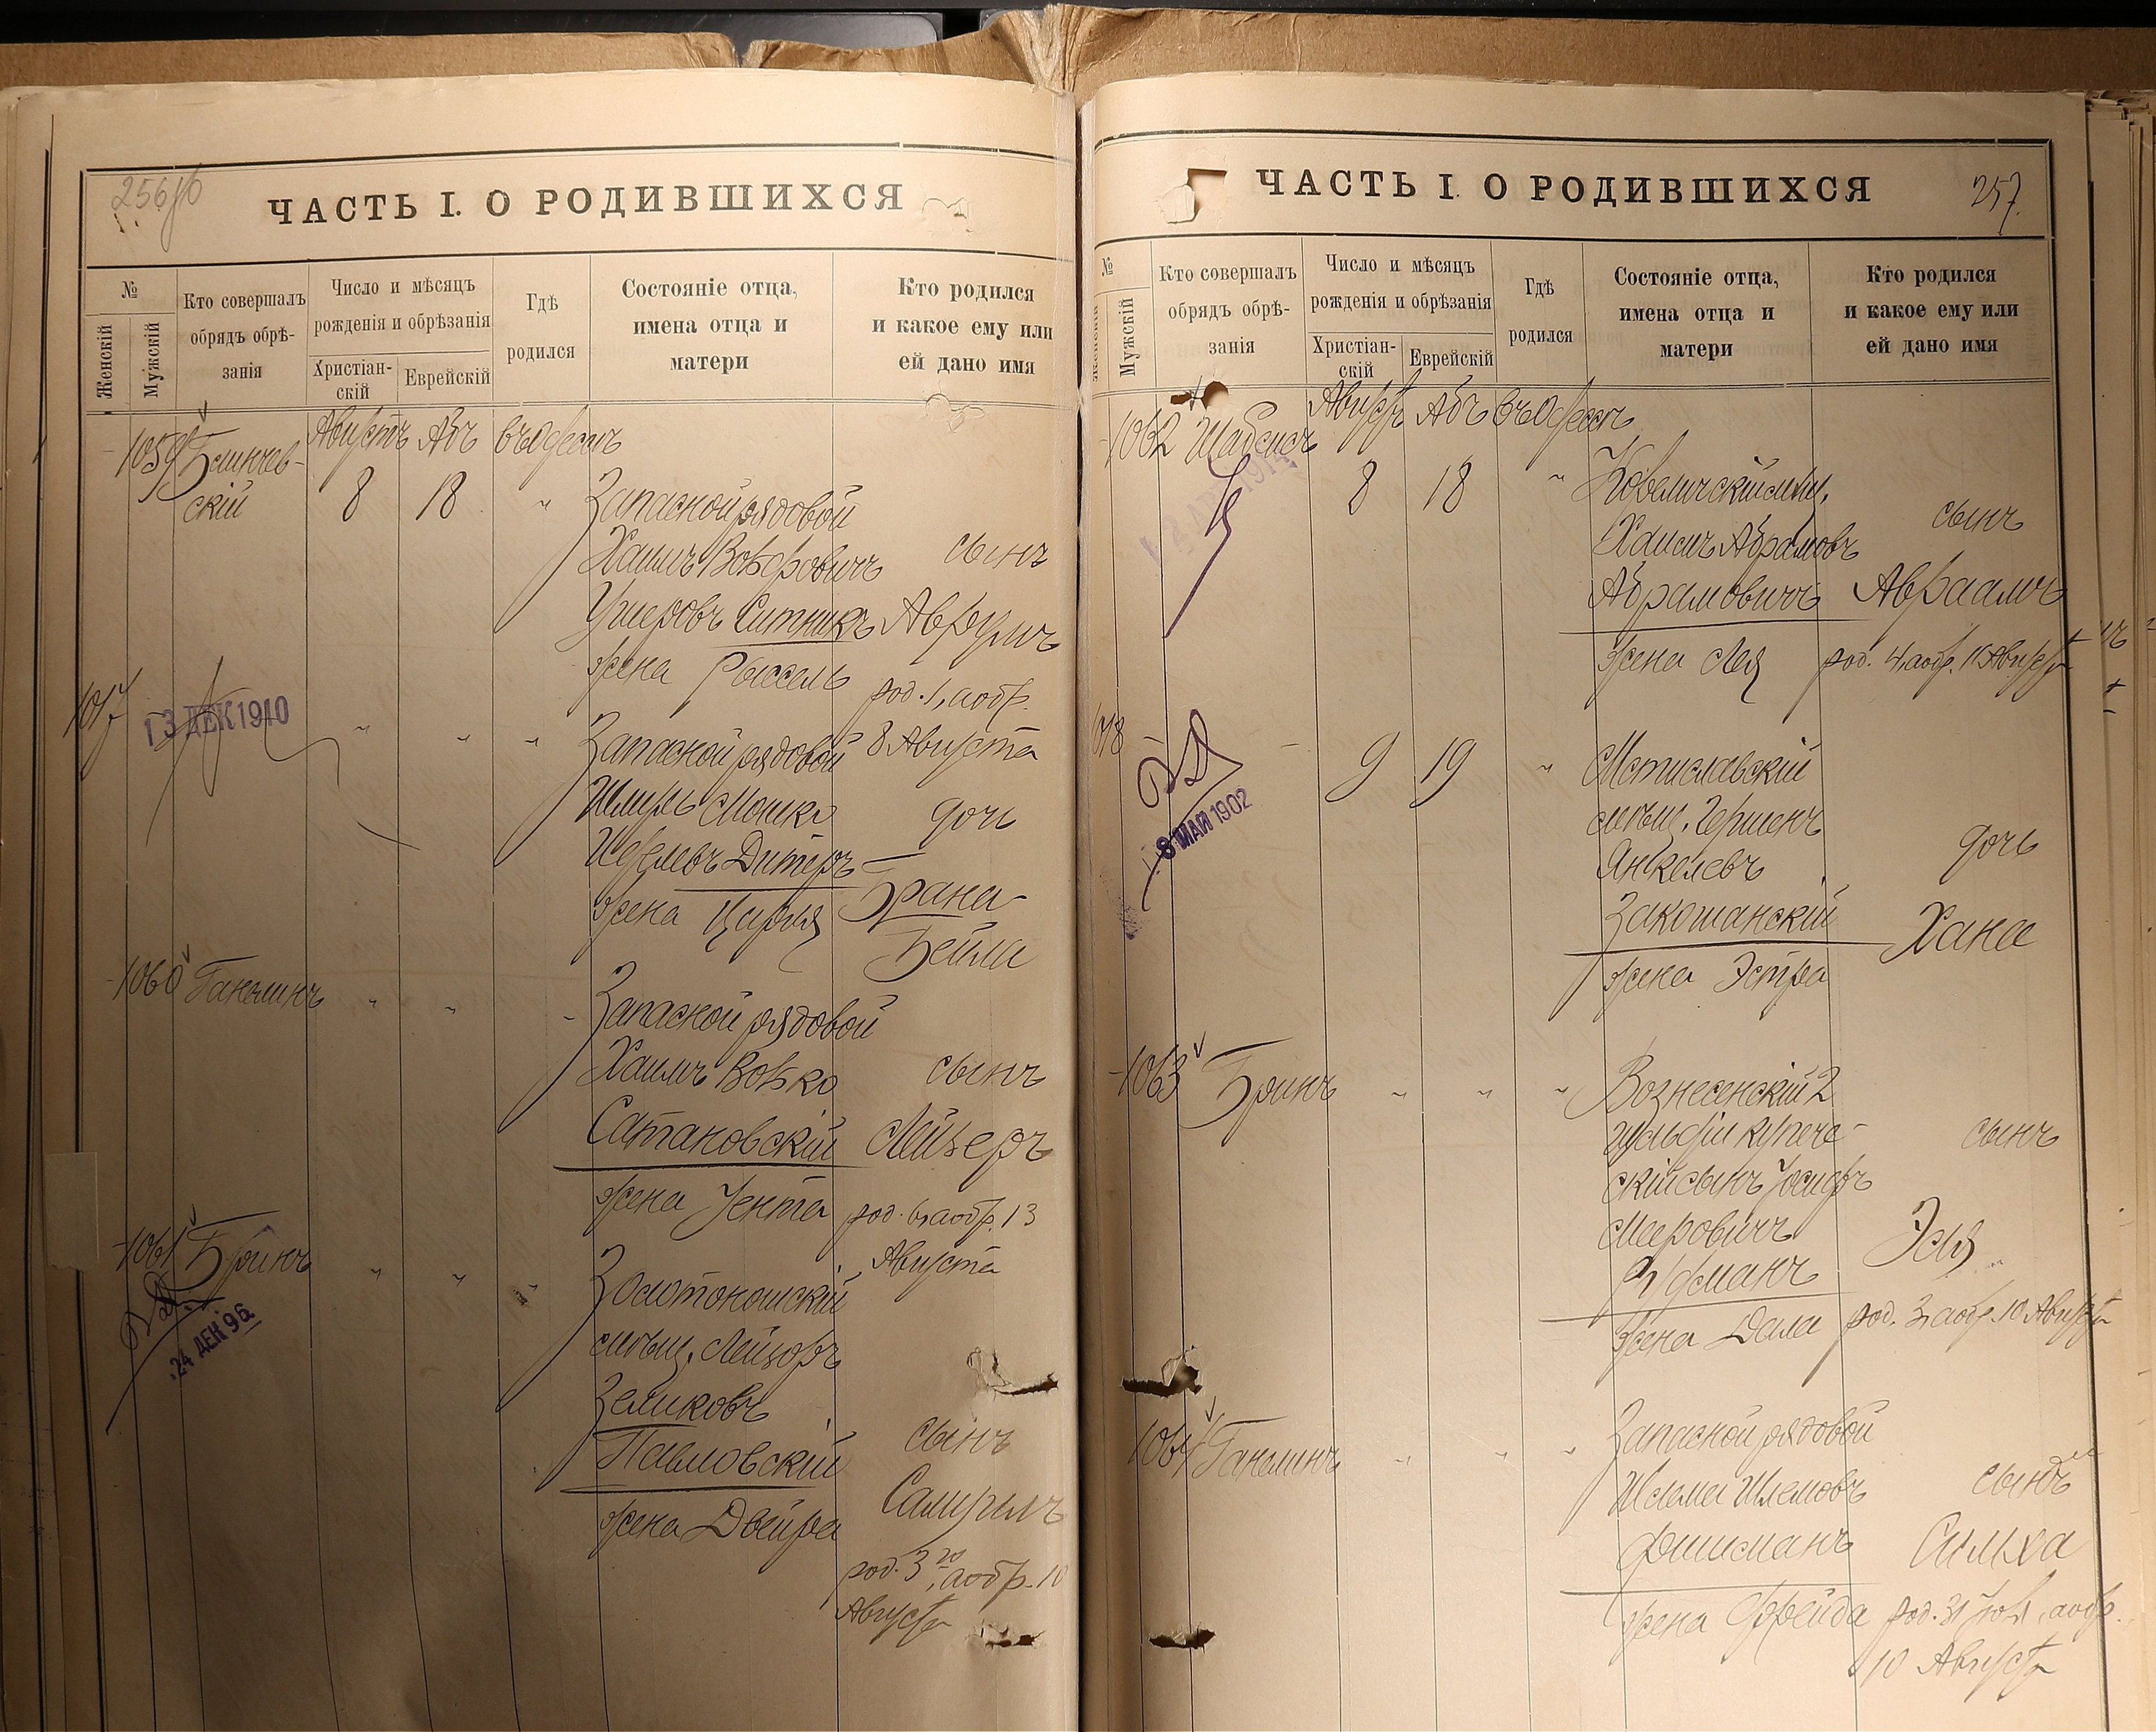 256об
ЧАСТЬ I. О РОДИВШИХСЯ
№
Женскій
Мужскій
Кто совершалъ
обрядъ обрѣ-
занія
Число и мѣсяцъ
рожденія и обрѣзанія
Христіан-
скій
Еврейскій
Гдѣ
родился
Состояніе отца,
имена отца и
матери
Кто родился
и какое ему или
ей дано имя
1059
Августъ Абъ въ Одессѣ
скій
8 18 "
Запасной рядовой
Хаимъ
Ситникъ
жена Рыссель
сынъ
Аврумъ
род. 1, а обр.
8 Августа
1017
13 ДЕК 1910
" " "
Запасной рядовой
Шмуль Мошко
Дитеръ
жена Цирля
дочь
Брана-
Бейла
1060 Ганелинъ " " "
Запасной рядовой
Хаимъ Волько
Сатановскій
жена Уента
сынъ
Лейзеръ
род. 6, а обр. 13
Августа
1061 Бринъ " " "
24 ДЕК 96
Золотоношскій
мѣщ. Лейзоръ
Зеликовъ
Павловскій
жена Двейра
сынъ
Самуилъ
род. 3го, а обр. 10
Августа
ЧАСТЬ I. О РОДИВШИХСЯ
257.
№
Женскій
Мужскій
Кто совершалъ
обрядъ обрѣ-
занія
Число и мѣсяцъ
рожденія и обрѣзанія
Христіан-
скій
Еврейскій
Гдѣ
родился
Состояніе отца,
имена отца и
матери
Кто родился
и какое ему или
ей дано имя
1062 Шабсисъ
Августъ Абъ въ Одессѣ
8 18 "
Хаимъ Абрамовъ
Абрамовичъ
жена Лея
сынъ
Авраамъ
род. 4, а обр. 11 Августа
1018
8 МАЙ 1902
9 19 "
Мстиславскій
мѣщ. Гершенъ
Янкелевъ
Закошанскій
жена Эстра
дочь
Хана
1063 Бринъ " " "
Вознесенскій 2
гильдіи купече-
скій сынъ Іосифъ
Мееровичъ
жена Дала
сынъ
род. 3, а обр. 10 Августа
1064 Ганелинъ " " "
Запасной рядовой
Шлема Шлемовъ
Фишманъ
жена Фрейда
сынъ
Симха
род. 31 Іюля, а обр.
10 Августа